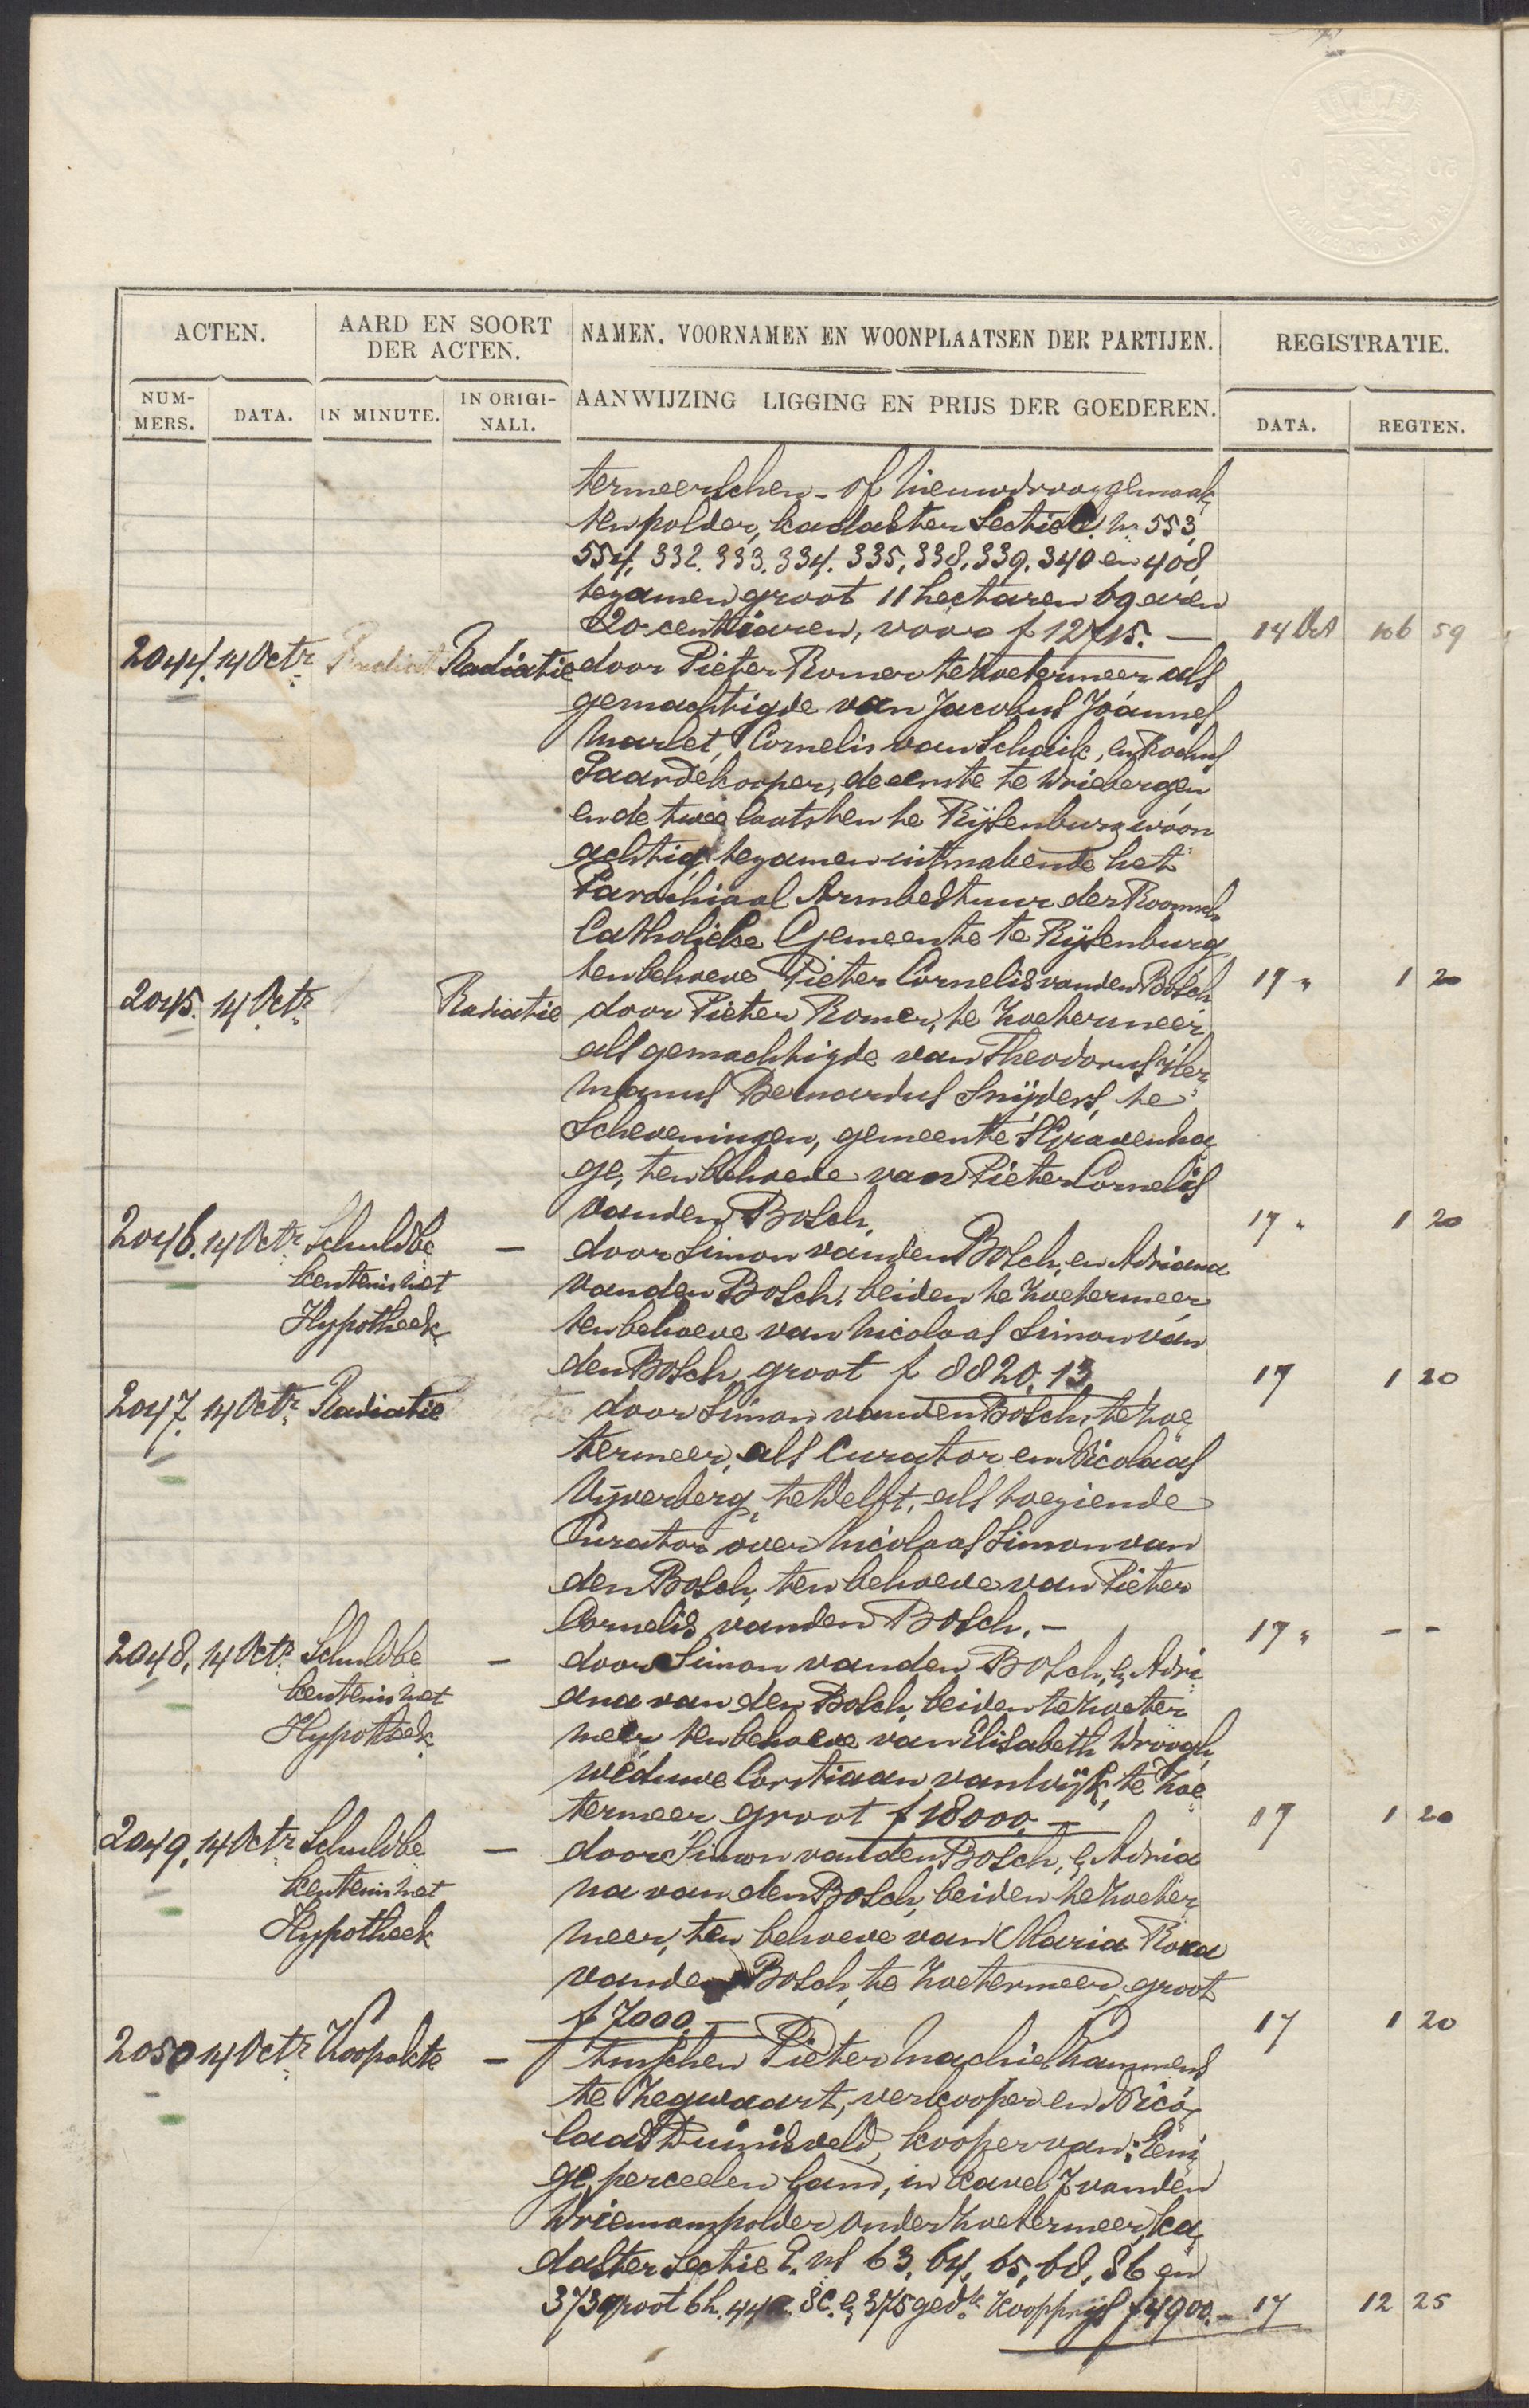 ACTEN.
AARD EN SOORT
DER ACTEN.
NAMEN, VOORNAMEN EN WOONPLAATSEN DER PARTIJEN.
REGISTRATIE.
NUM-
MERS.
DATA.
IN MINUTE.
IN ORIGI-
NALI.
AANWIJZING LIGGING EN PRIJS DER GOEDEREN.
DATA.
REGTEN.
termeerschen- of nieuwdrooggemaak
ten polder, kadaster Sectie C. no 553,
554, 332. 333. 334. 335, 338, 339. 340 en 408,
tezamen groot 11 hectaren 69 aren
20 centiaren, voor f 12715.— 14 Oct 106 59
2044. 14 Octr. Radiatie door Pieter Romer te Zoetermeer als
gemachtigde van Jacobus Joannes
Marlet, Cornelis van Schaik, en Rochus
Paardekooper, de eerste te Driebergen
en de twee laatsten te Rijsenburg woon
achtig, tezamen uitmakende het
Parochiaal Armbestuur der Roomsch
Catholieke Gemeente te Rijsenburg,
ten behoeve Pieter Cornelis van den Bosch 17 " 1 20
2045. 14 Octr. Radiatie door Pieter Romer, te Zoetermeer,
als gemachtigde van Theodorus Her
manus Bernardus Snijders, te
Scheveningen, gemeente 'sGravenha
ge, ten behoeve van Pieter Cornelis
van den Bosch. 17 " 1 20
2046. 14 Octr. Schuldbe — door Simon van den Bosch, en Adriana
kentenis met van den Bosch, beiden te Zoetermeer
Hypotheek ten behoeve van Nicolaas Simon van
den Bosch, groot f 8820,13. 17 1 20
2047. 14 Octr. Radiatie door Simon van den Bosch, te Zoe
termeer, als Curator en Nicolaas
Vijverberg, te Delft, als toeziende
Curator over Nicolaas Simon van
den Bosch, ten behoeve van Pieter
Cornelis van den Bosch.— 17 " - -
2048. 14 Octr. Schuldbe — door Simon van den Bosch, & Adri
kentenis met ana van den Bosch, beiden te Zoeter
Hypotheek meer ten behoeve van Elisabeth
weduwe Corstiaan van Wijk, te Zoe
termeer groot f 18000.— 17 1 20
2049. 14 Octr. Schuldbe — door Simon van den Bosch, & Adria
kentenis met na van den Bosch, beiden te Zoeter
Hypotheek meer, ten behoeve van Maria Roza
van den Bosch, te Zoetermeer, groot
f 7000,— 17 1 20
2050 14 Octr. Koopakte — tusschen Pieter Machiel Kammens
te Zegwaart, verkooper en Nico
laas Duinisveld, kooper van: Eeni
ge perceelen land, in kavel 7 van den
Driemanspolder onder Zoetermeer, ka
daster Sectie E. ns 63, 64, 65, 68, 86 en
373 groot 6h. 44a. 8c. & 375 gedte. Koopprijs f 4900.— 17 12 25